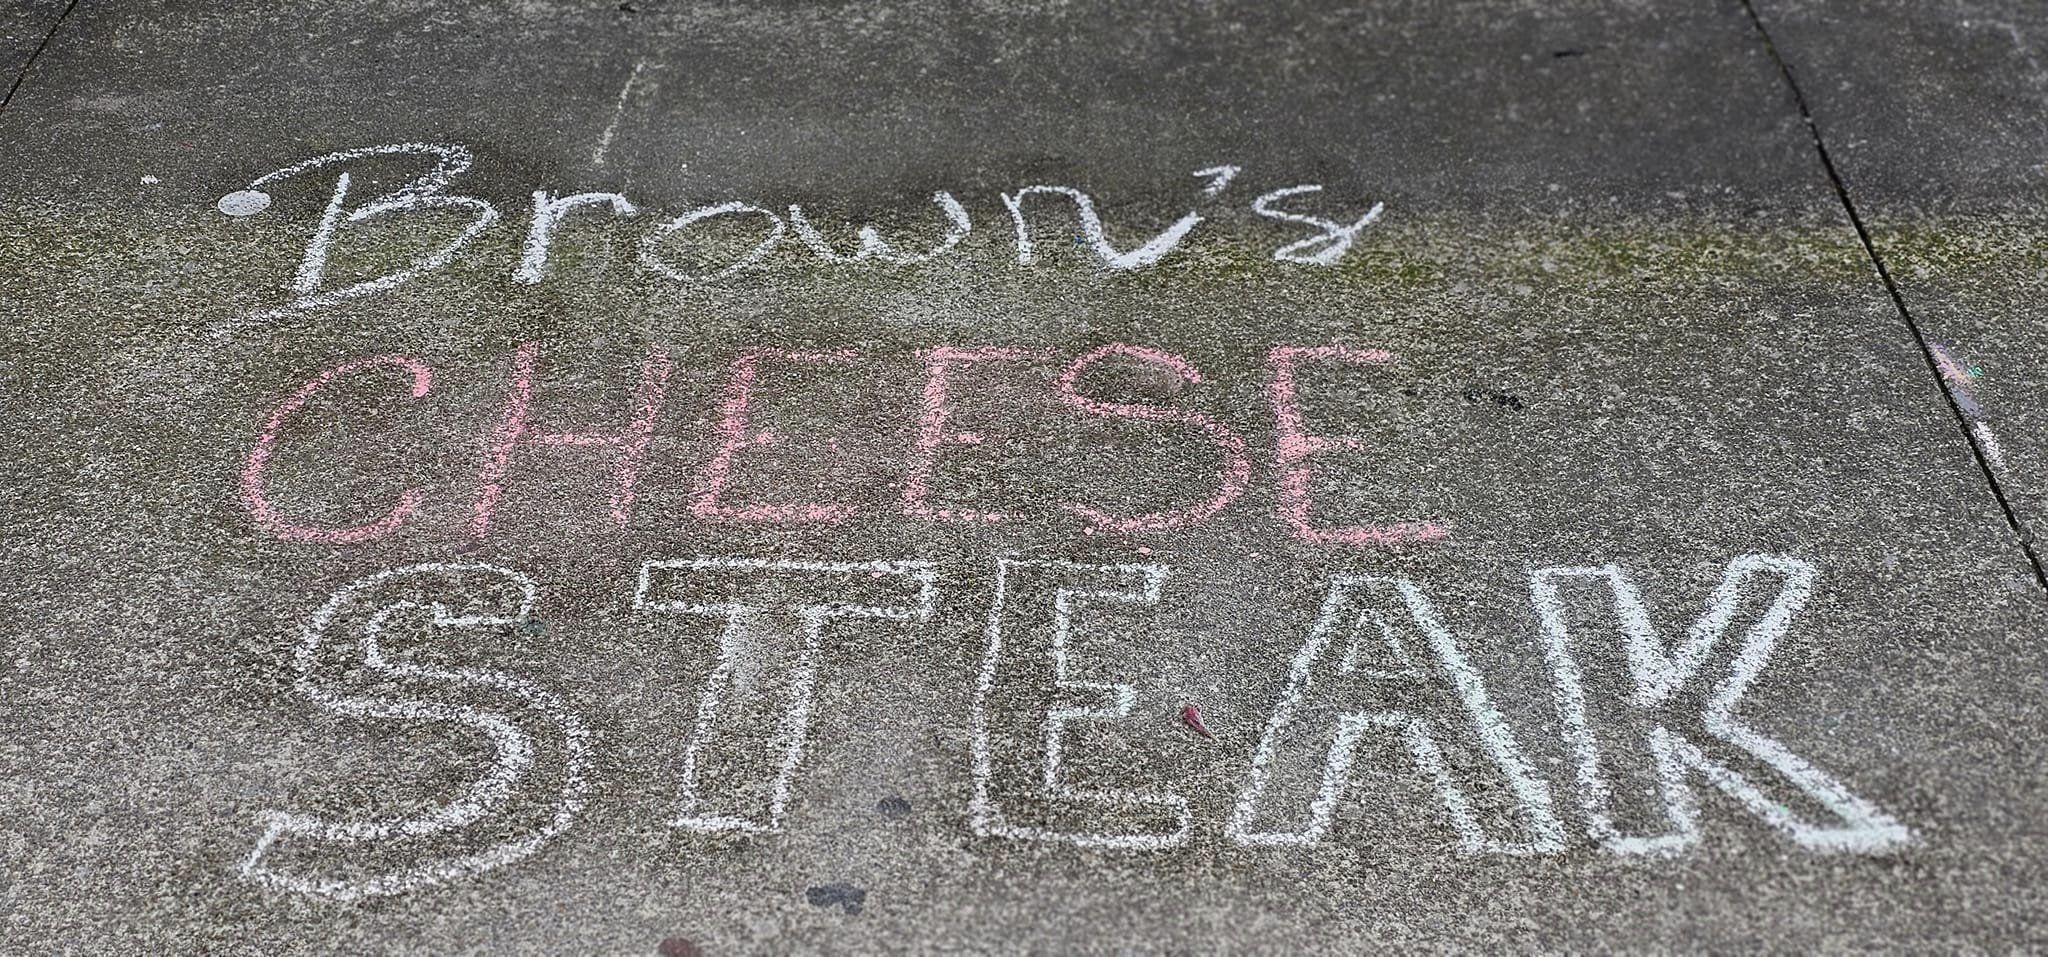 Brown's
CHEESE
STEAK